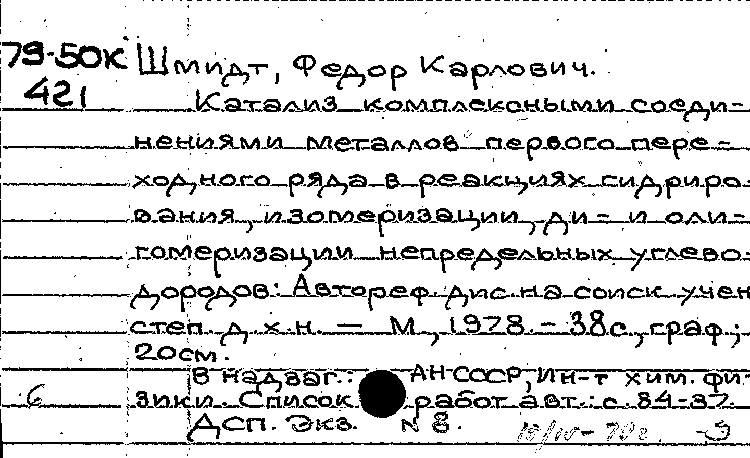 79-50К Шмидт, Федор Карлович.
421 Катализ комплексными соеди-
нениями металлов первого пере-
ходного ряда в реакциях гидриро-
вания, изомеризации, ди- и оли-
гомеризации непредельных углево-
дородов: Автореф. дис. на соиск. учен.
степ. д. х. н. — М., 1978. - 38с., граф.;
20см.
В надзаг.: АН СССР, Ин-т хим. фи-
6 зики. Список работ авт.: с. 34-37.
ДСП. Экз. N 8.